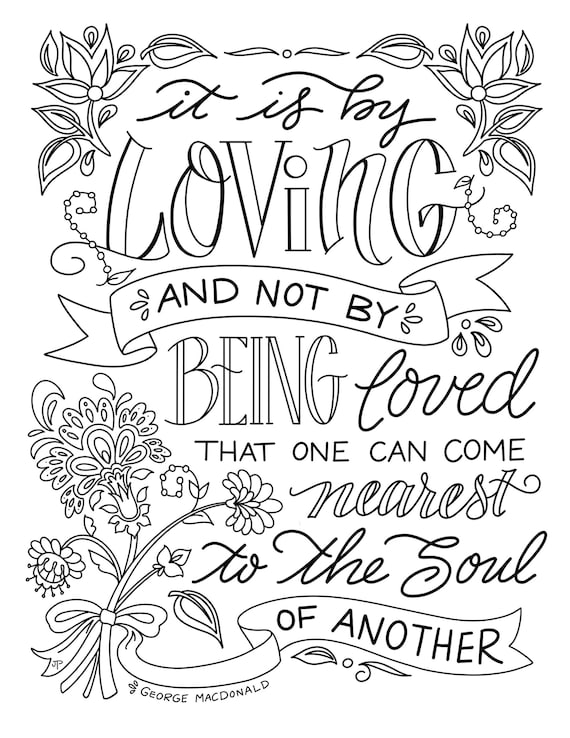 it is by
LOViNG
AND NOT BY
BEING loved
THAT ONE CAN COME
nearest
to the Soul
OF ANOTHER
JP
GEORGE MACDONALD